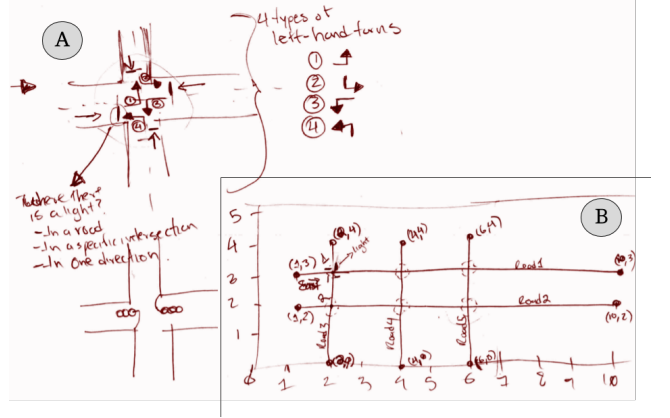 A
4 types of
left-hand turns
1
2
3
4
is a light?
- In a road
- In a specific intersection
- In one direction
B
5
4
3
2
1
(4,4)
(6,4)
light
(1,3)
Road 1
(10,3)
(1,2)
Road 2
(10,2)
Road 3
Road 4
Road 5
(4,0)
(6,0)
0 1 2 3 4 5 6 7 8 9 10